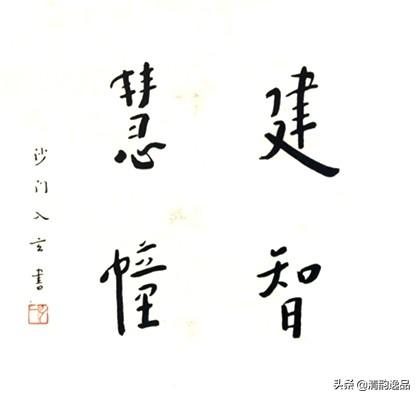 建智
慧幢
沙门入玄書
头条 @清韵逸品